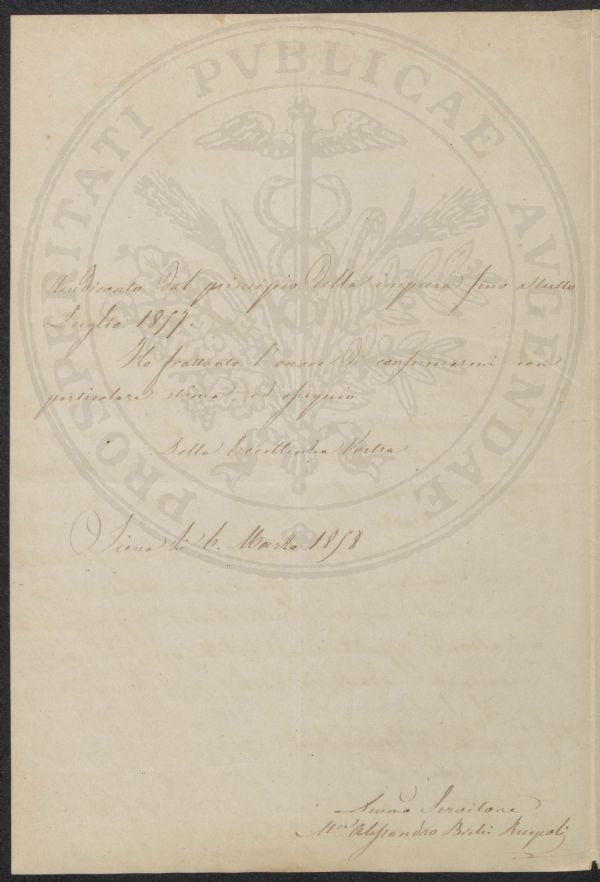 PROSPERITATI PVBLICAE AVGENDAE
Rendiconto dal principio della impresa fino a tutto
Luglio 1857.
Ho frattanto l'onore di confermarmi con
particolare stima ed ossequio
Della Eccellenza Vostra
Siena li 6. Marzo 1858
Servitore
Alessandro Bichi Ruspoli